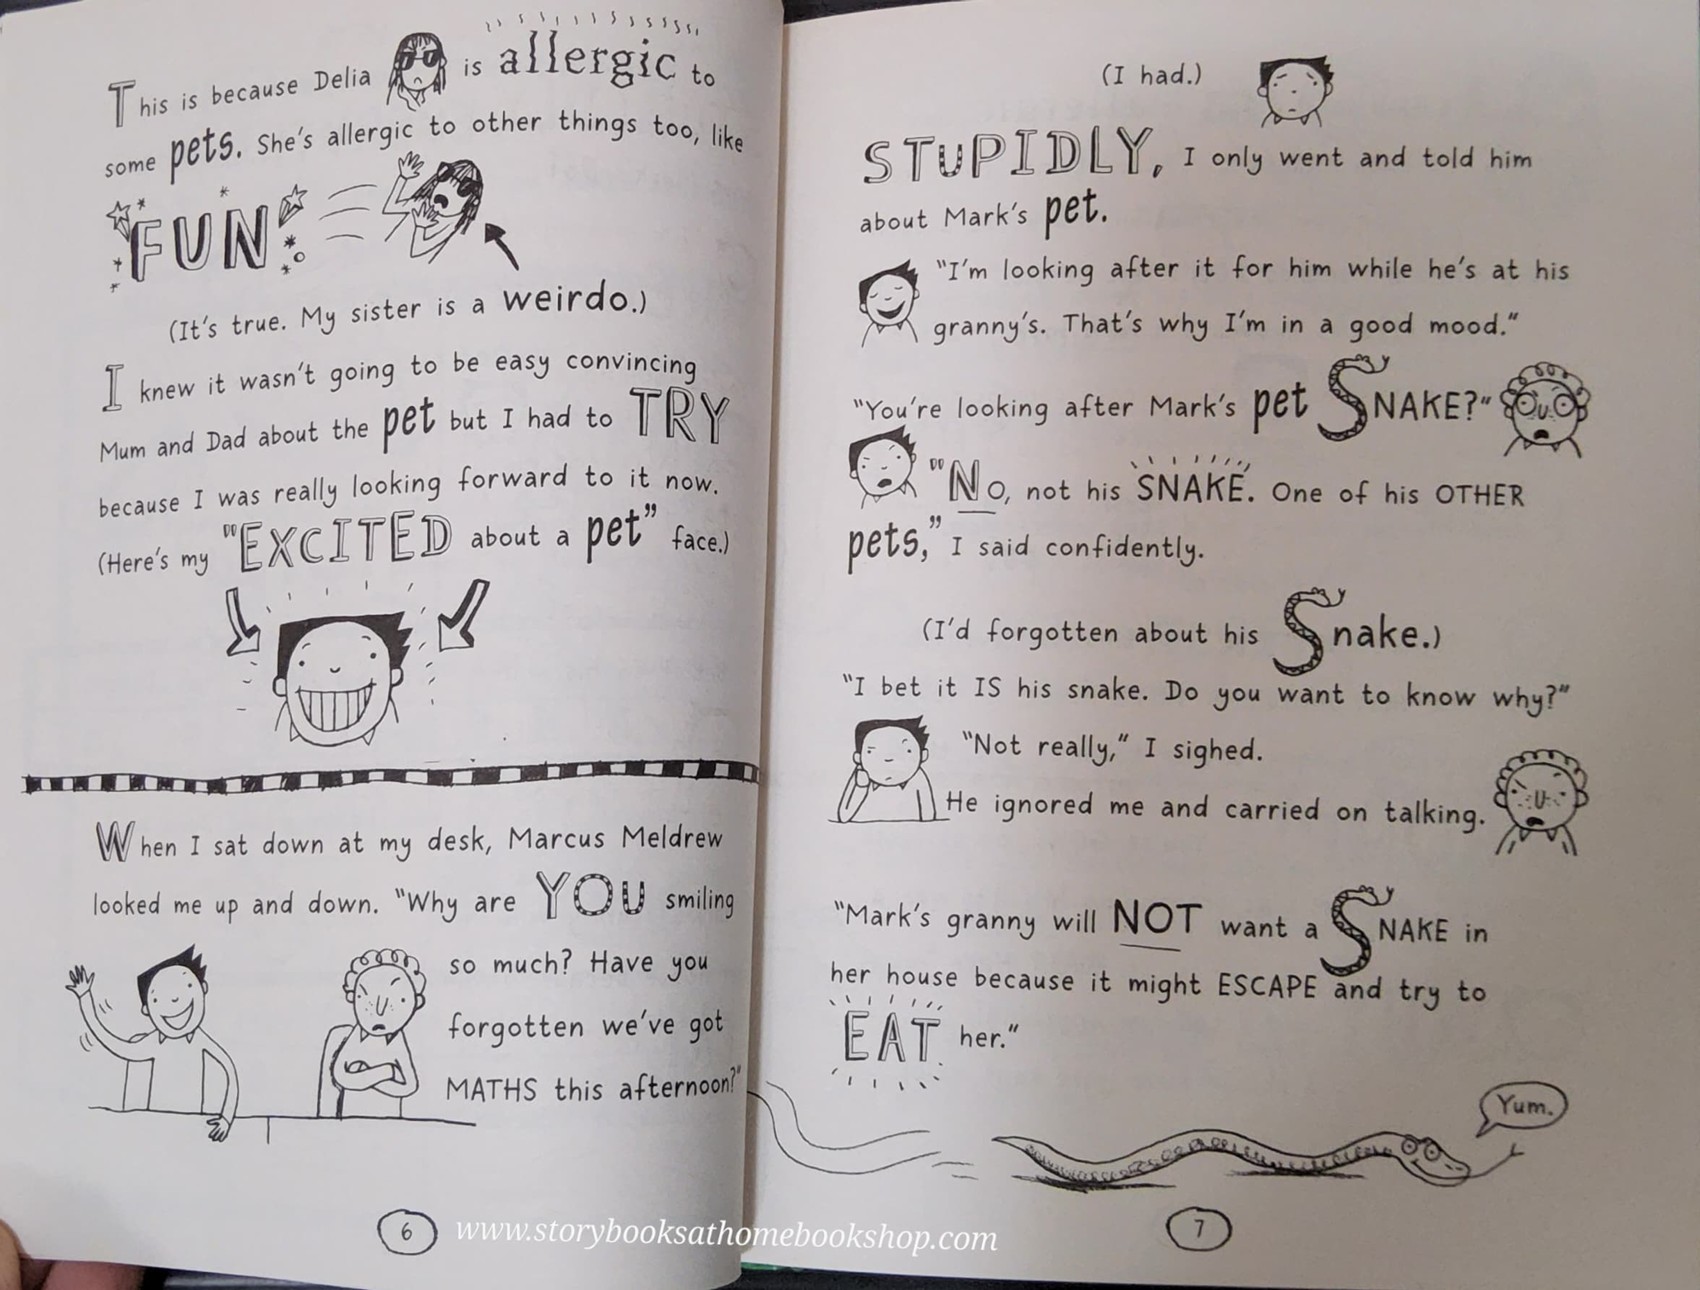 This is because Delia is allergic to
some pets. She's allergic to other things too, like
FUN!
(It's true. My sister is a weirdo.)
I knew it wasn't going to be easy convincing
Mum and Dad about the pet but I had to TRY
because I was really looking forward to it now.
(Here's my "EXCITED about a pet" face.)
When I sat down at my desk, Marcus Meldrew
looked me up and down. "Why are YOU smiling
so much? Have you
forgotten we've got
MATHS this afternoon?"
6
(I had.)
STUPIDLY, I only went and told him
about Mark's pet.
"I'm looking after it for him while he's at his
granny's. That's why I'm in a good mood."
"You're looking after Mark's pet SNAKE?"
"No, not his SNAKE. One of his OTHER
pets," I said confidently.
(I'd forgotten about his Snake.)
"I bet it IS his snake. Do you want to know why?"
"Not really," I sighed.
He ignored me and carried on talking.
"Mark's granny will NOT want a SNAKE in
her house because it might ESCAPE and try to
EAT her."
Yum.
7
www.storybooksathomebookshop.com